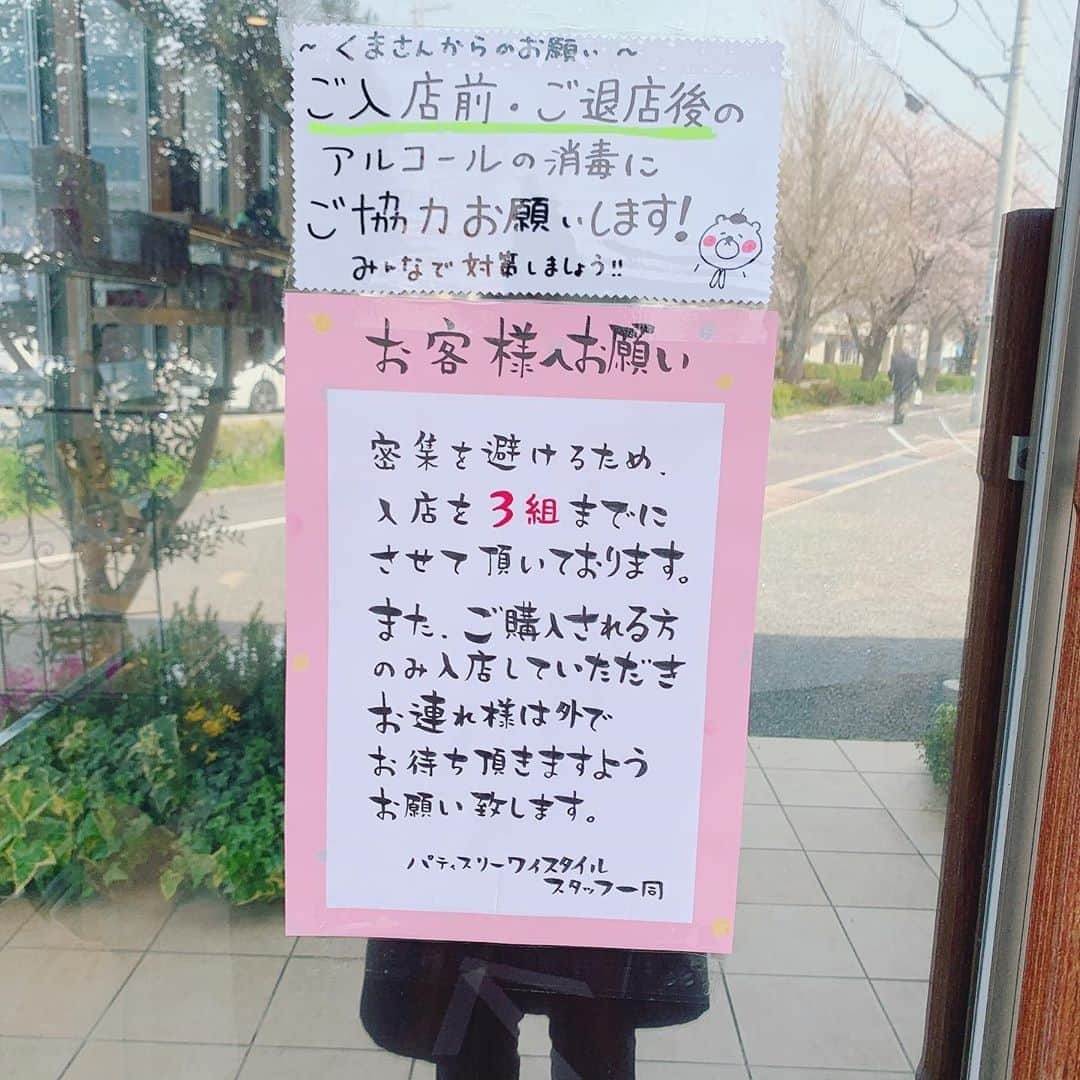 ～ くまさんからのお願い ～
ご入店前・ご退店後の
アルコールの消毒に
ご協力お願いします!
みんなで対策しましょう!!
お客様へお願い
密集を避けるため、
入店を3組までに
させて頂いております。
また、ご購入される方
のみ入店していただき
お連れ様は外で
お待ち頂きますよう
お願い致します。
パティスリーワイスタイル
スタッフ一同